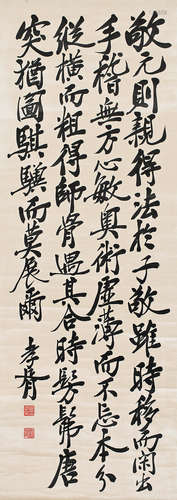 敬元則親得法於子敬雖時移而閑出
手稽無方心敏奧術虛薄而不忘本分
縱橫而粗得師骨遇其合時髣髴唐
突猶圖騏驥而莫展爾
孝胥